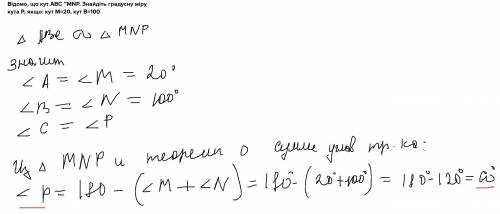 Відомо, що кут ABC ~MNP. Знайдіть градусну міру
кута P, якщо: кут M=20, кут B=100
△ ABC ∾ △ MNP
значит
∠A = ∠M = 20°
∠B = ∠N = 100°
∠C = ∠P
Из △ MNP и теорем о сумме углов тр.-ка:
∠P = 180 - (∠M + ∠N) = 180° - (20° + 100°) = 180° - 120° = 60°